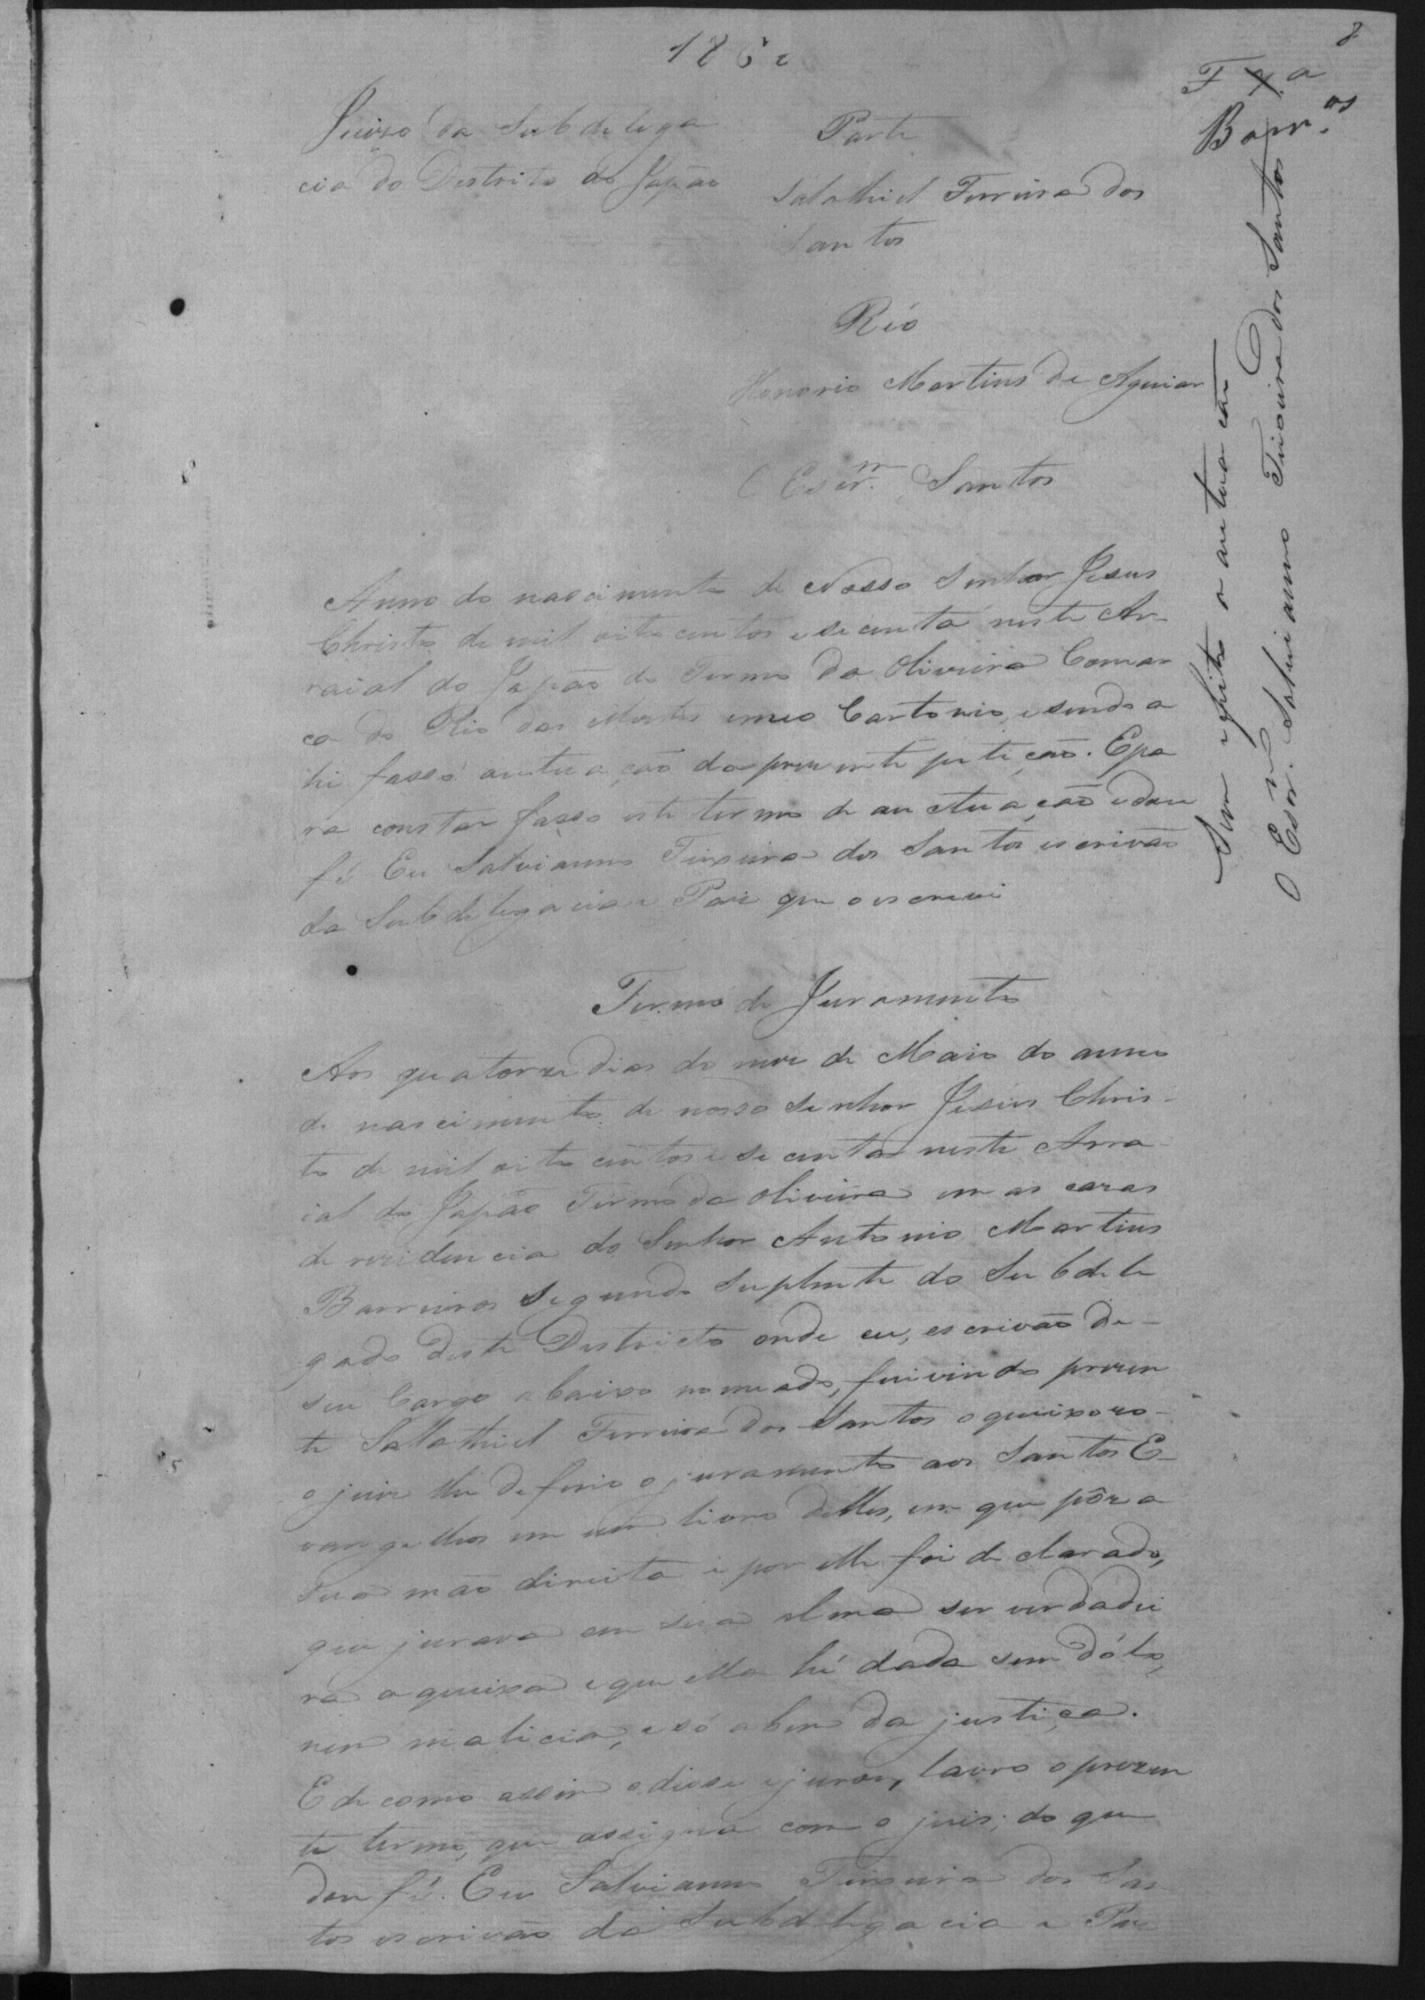 8
1860
F 1 a
Barr.os
Juizo da Subdelega
cia do Destrito do Japão
Parte
Salathiel Ferreira dos
Santos
Réo
Honorio Martins de Aguiar
O Escr.m Santos
Anno do nascimento de Nosso Senhor Jesus
Christo de mil oito centos e secenta neste Ar-
raial do Japão do Termo da Oliveira Comar
ca do Rio das Mortes em meo Cartorio, e sendo a
hi fasso autuação da prezente petição. E pa
ra constar fasso este termo de auctuação e dou
fé Eu Salvianno Teixeira dos Santos escrivão
da Subdelegacia e Paz que o escrevi
Termo de Juramento
Aos quatorze dias do mez de Maio do anno
do nascimento de nosso Senhor Jesus Chris-
to de mil oito centos e secenta neste Arra-
ial do Japão Termo da Oliveira em as cazas
de rezidencia do Senhor Antonio Martins
Barreiros segundo suplente do Subdele
gado deste Destricto onde eu, escrivão de
seu Cargo abaixo nomeado, fui vindo prezen
te Sallathiel Ferreira dos Santos o queixozo
o juiz lhe deferio o juramento aos Santos E-
vangelhos em um livro delles, em que pôz a
sua mão direita e por elle foi declarado,
que jurava em sua alma ser verdadei
ra a queixa e que ella hé dada sem dólo,
nem malicia, e só a bem da justiça.
E de como assim o disse e jurou, lavro o prezen
te termo, que assigna com o juis; do que
dou fé. Eu Salvianno Teixeira dos San
tos escrivão da Subdelegacia e Paz
Sem effeito a autuação
O Escr.m Salvianno Teixeira dos Santos